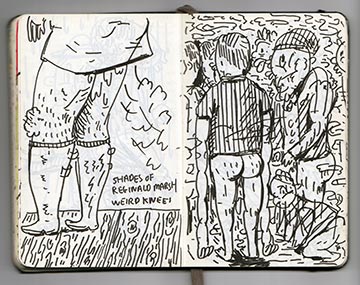 SHADES OF
REGINALD MARSH
WEIRD KNEES